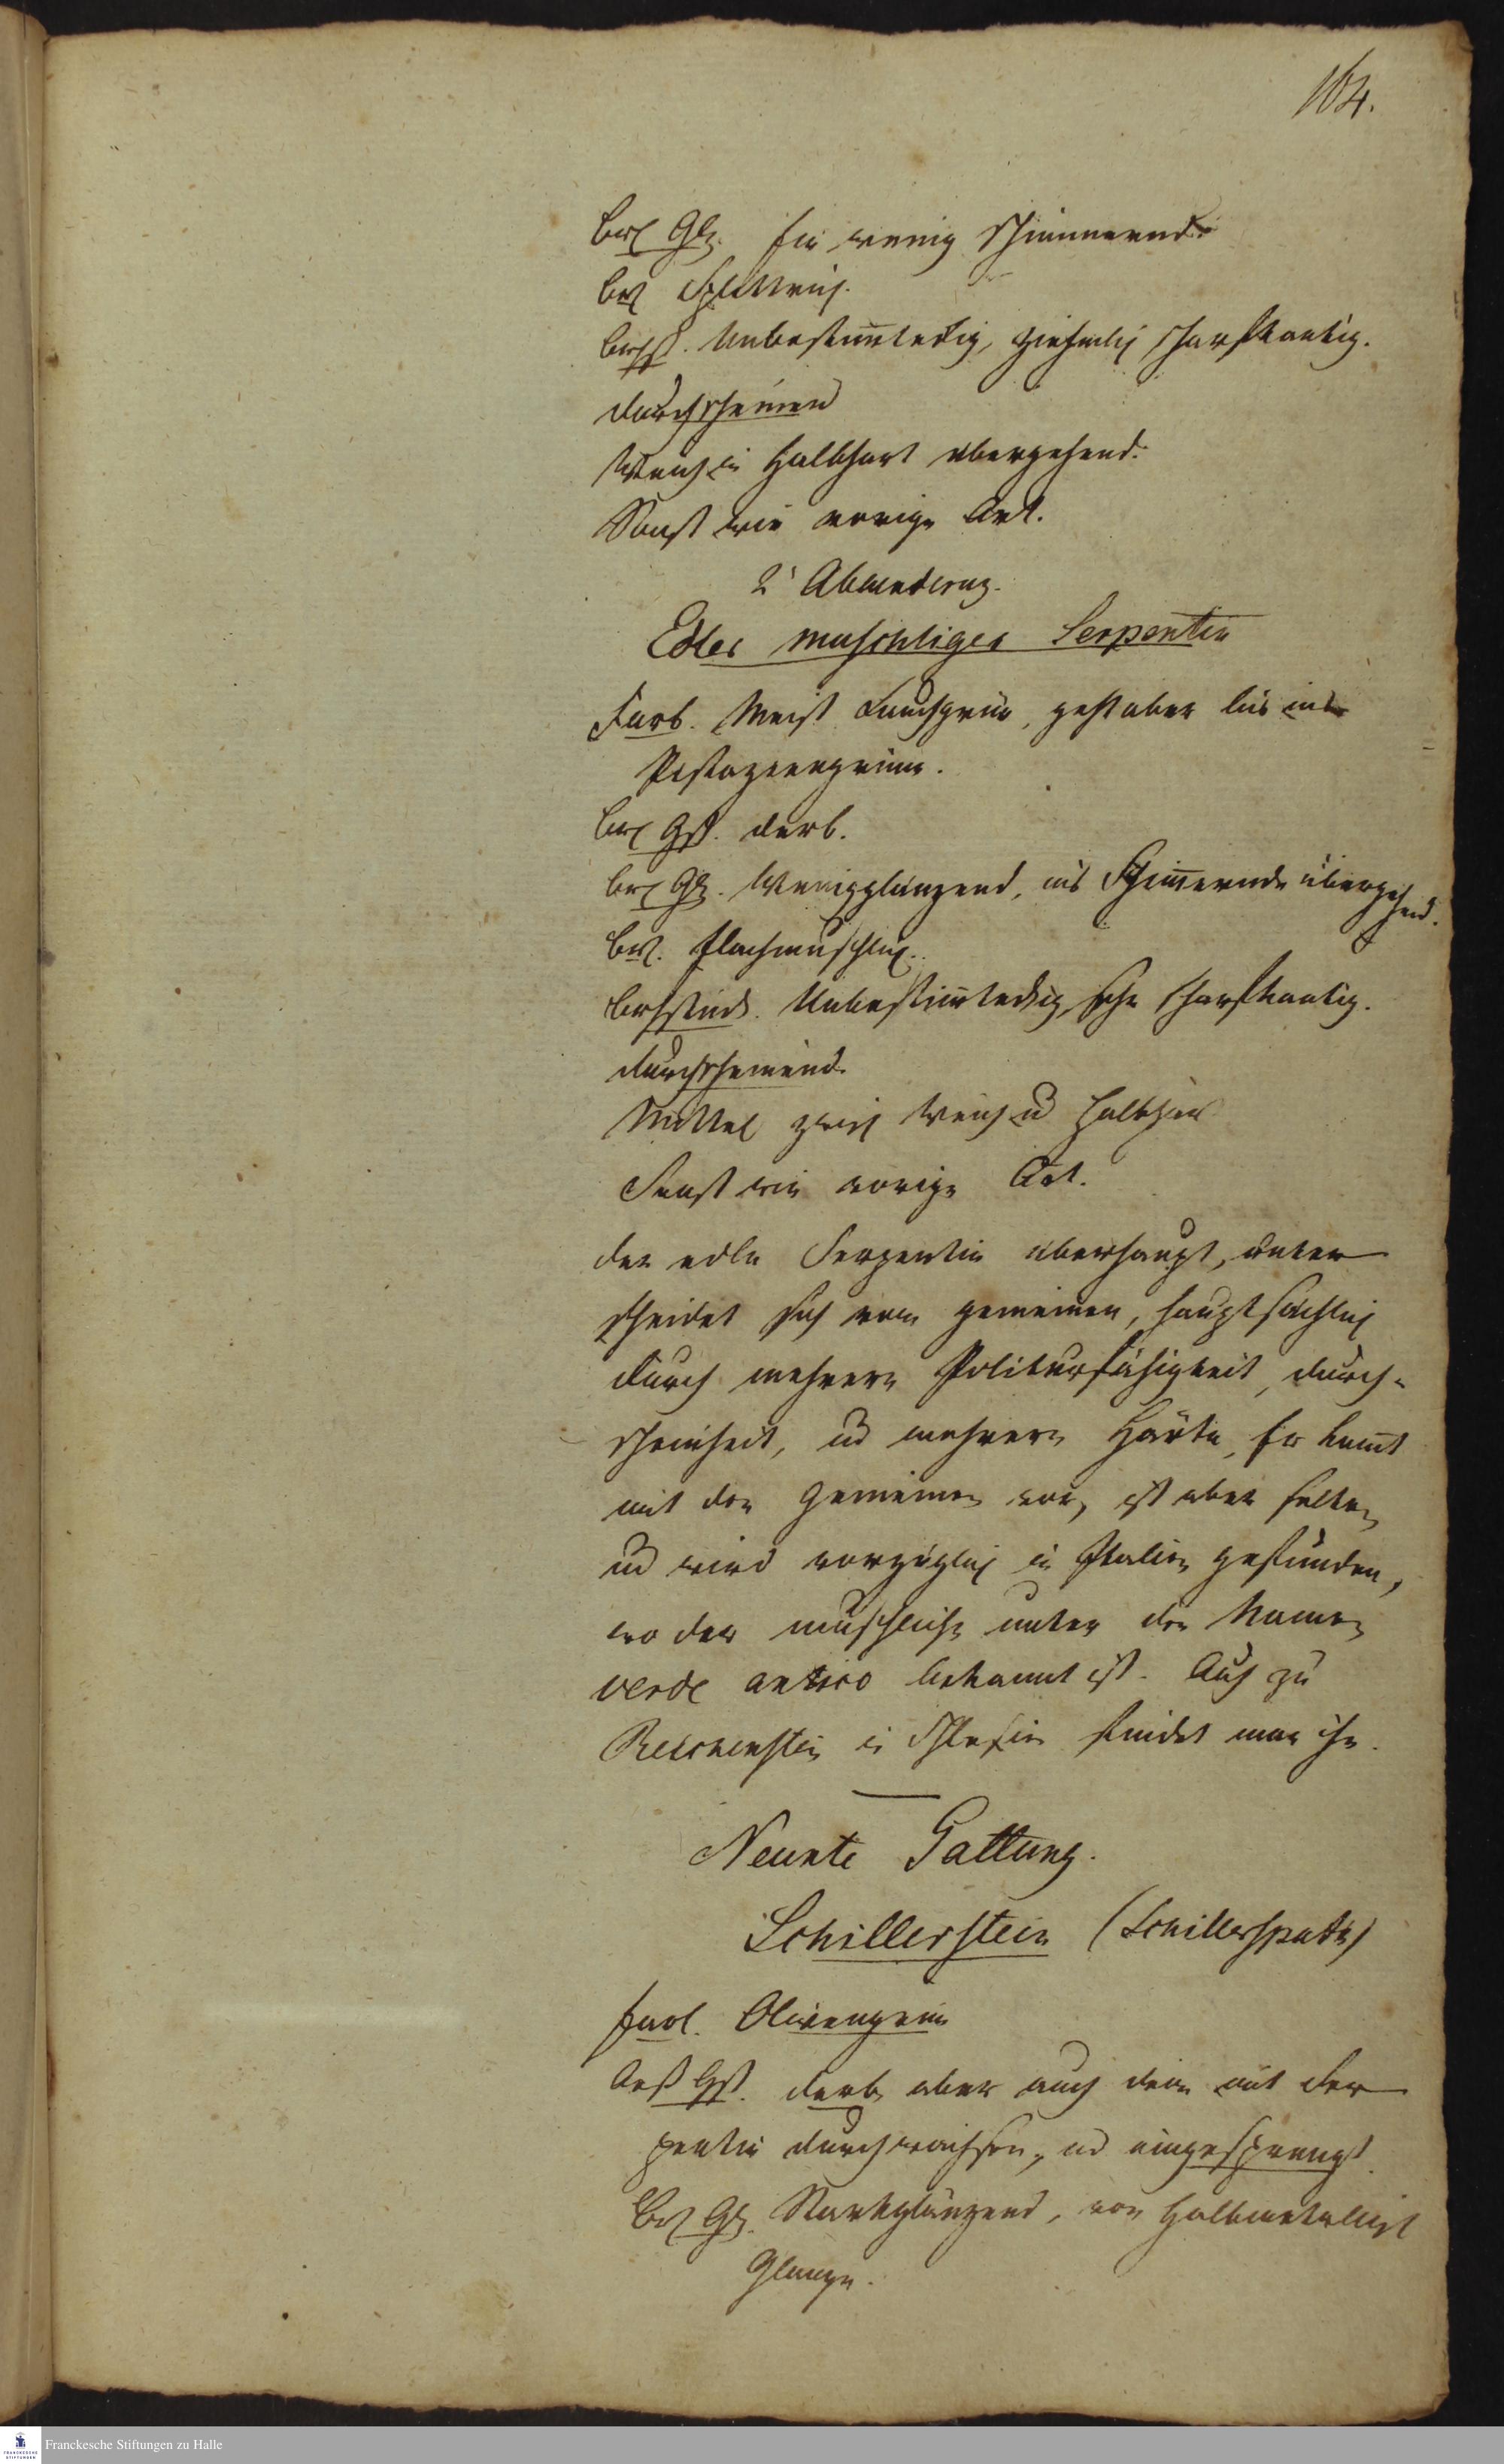 164.
brch Glz. Ein wenig schimmernd.
brch Splittrich.
brchst. Unbestimteckig, ziehmlich scharfkantig.
durchscheinend
Weich in Halbhart übergehend.
Sonst wie vorige Art.
2' Abaenderung.
Edler muschliger Serpentin
Farb. Meist Lauchgrün, geht aber bis ins
Pistaziengrüne.
brch Gst. derb.
brch Glz. Wenigglänzend, ins Schimernde übergehend.
brch. flachmuschlich.
brchstück. Unbestimteckig sehr scharfkantig.
durchscheinend.
Mittel zwisch weich ud halbhart
Sonst wie vorige Art.
der edle Serpentin überhaupt, unter
scheidet sich vom gemeinen, hauptsächlich
durch mehrere Politurfähigkeit, durch-
scheinheit, ud mehrere Härte, Er komt
mit den Gemeinen vor, ist aber selten
ud wird vorzüglich in Italien gefunden,
wo der muschliche unter den Namen
verde antico bekannt ist. Auch zu
Reichenstein in Schlesien findet man ihn.
Neunte Gattung.
Schillerstein (Schillerspath)
Farb. Olivengrün
Aeß Gst. derb, aber auch dein mit Ser
pentin durchwachsen, ud eingesprengt
Brch Glz. Starkglänzend, von Halbmetallisch
Glanze.
Franckesche Stiftungen zu Halle